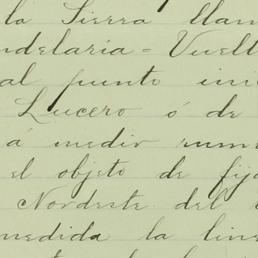 la Sierra llam
ndelaria = Vuelt
al punto ini
Lucero ó de
á medir rum
el objeto de fija
Nordeste del
medida la line